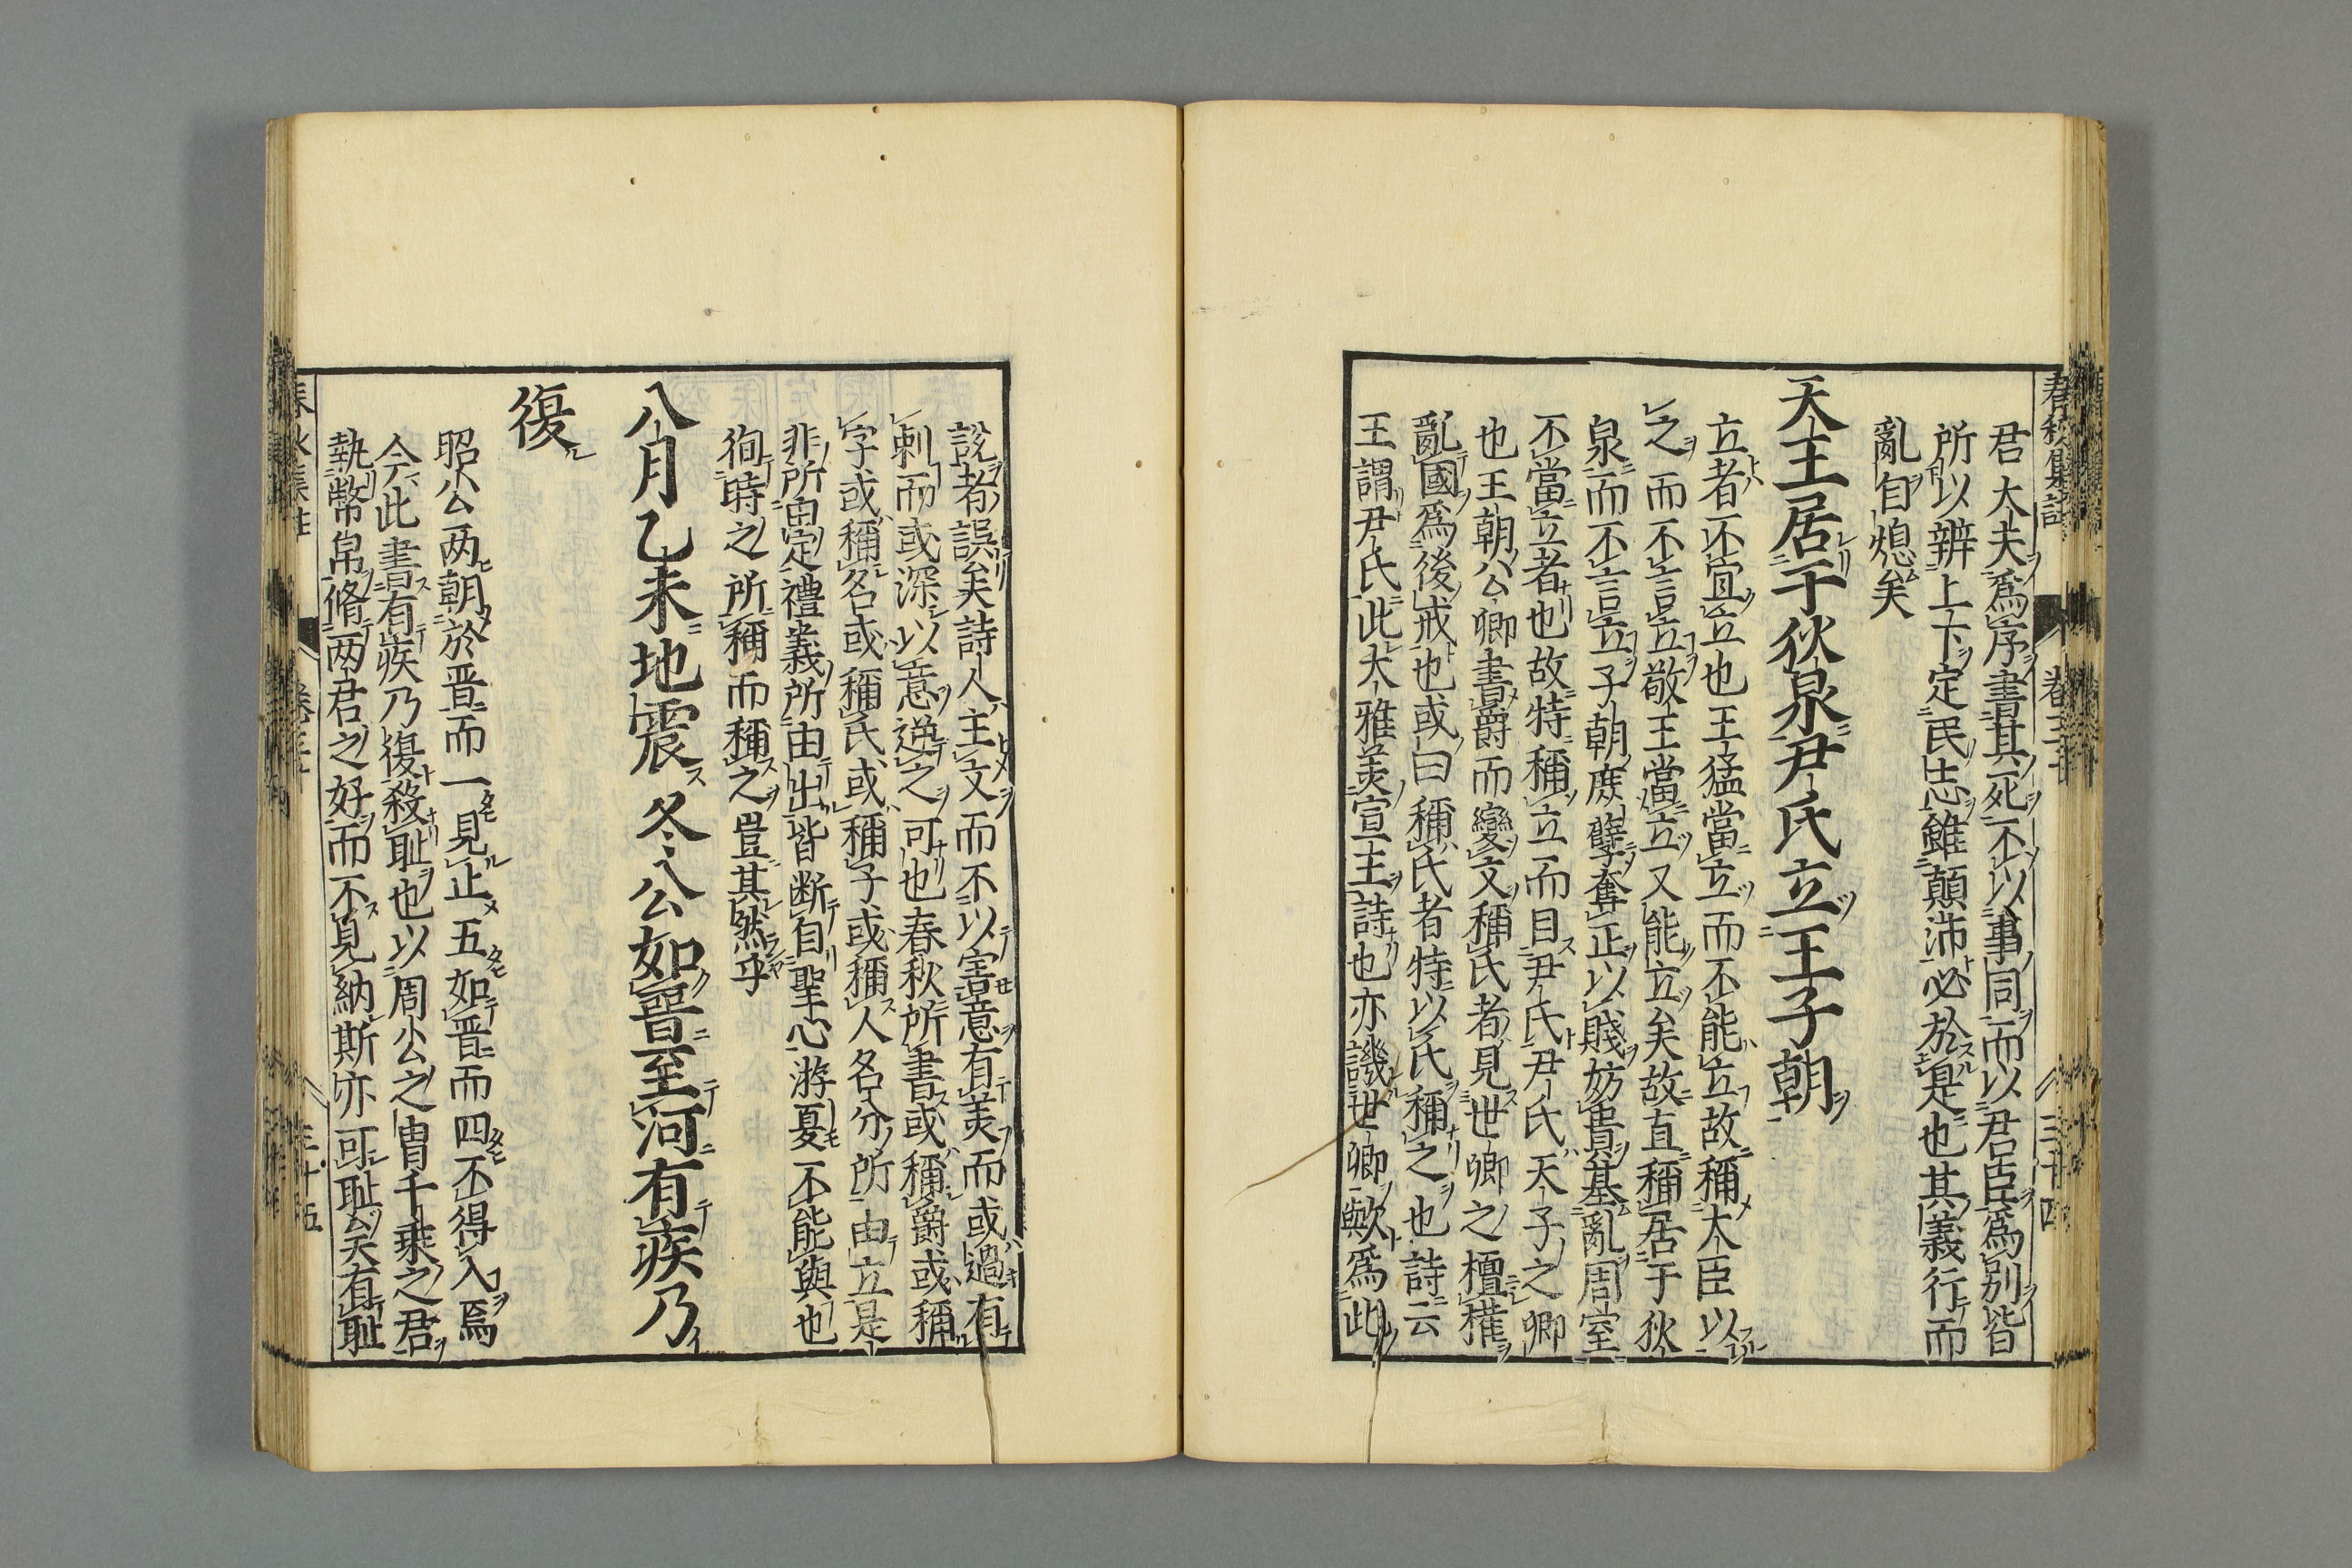 君大夫爲序書其死不以事同而以君臣爲別皆
所以辨上下定民志雖顛沛必於是也其義行而
亂自熄矣
天王居于狄泉尹氏立王子朝
立者不宜立也王猛當立而不能立故稱大臣以
之而不言立敬王當立又能立矣故直稱居于狄
泉而不言立子朝庶孽奪正以賤妨貴基亂周室
不當立者也故特稱立而目尹氏尹氏天子之卿
也王朝公卿書爵而變文稱氏者見世卿之檀權
亂國爲後戒也或曰稱氏者特以氏稱之也詩云
王謂尹氏此大雅美宣王詩也亦譏世卿歟爲此
說者誤矣詩人主文而不以害意有美而或過有
刺而或深以意逆之可也春秋所書或稱爵或稱
字或稱名或稱氏或稱子或稱人名分所由立是
非所由定禮義所由出皆断自聖心游夏不能與也
徇時之所稱而稱之豈其然乎
八月乙未地震冬公如晉至河有疾乃
復
昭公两朝於晋而一見止五如晋而四不得入焉
今此書有疾乃復殺耻也以周公之冑千乘之君
執幣帛脩两君之好而不見納斯亦可耻矣有耻
春秋集註
卷三十
三十四
三十五